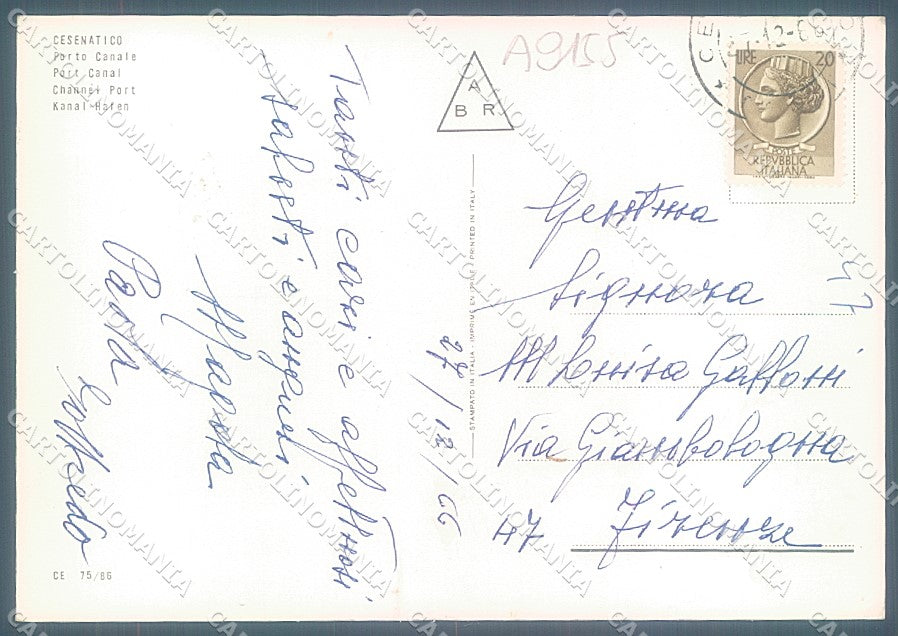 CESENATICO
Porto Canale
Port Canal
Channel Port
Kanal-Hafen
A9155
A
B R
LIRE 20
POSTE
REPVBBLICA
ITALIANA
Tanti cari e affettuosi
saluti e auguri
Paola
Goffredo
27/12/66
STAMPATO IN ITALIA - IMPRIME EN ITALIE - PRINTED IN ITALY
Gentma
Signora
M Luisa Galloni
Via Giambologna
47 Firenze
47
CE 75/86
CARTOLINOMANIA